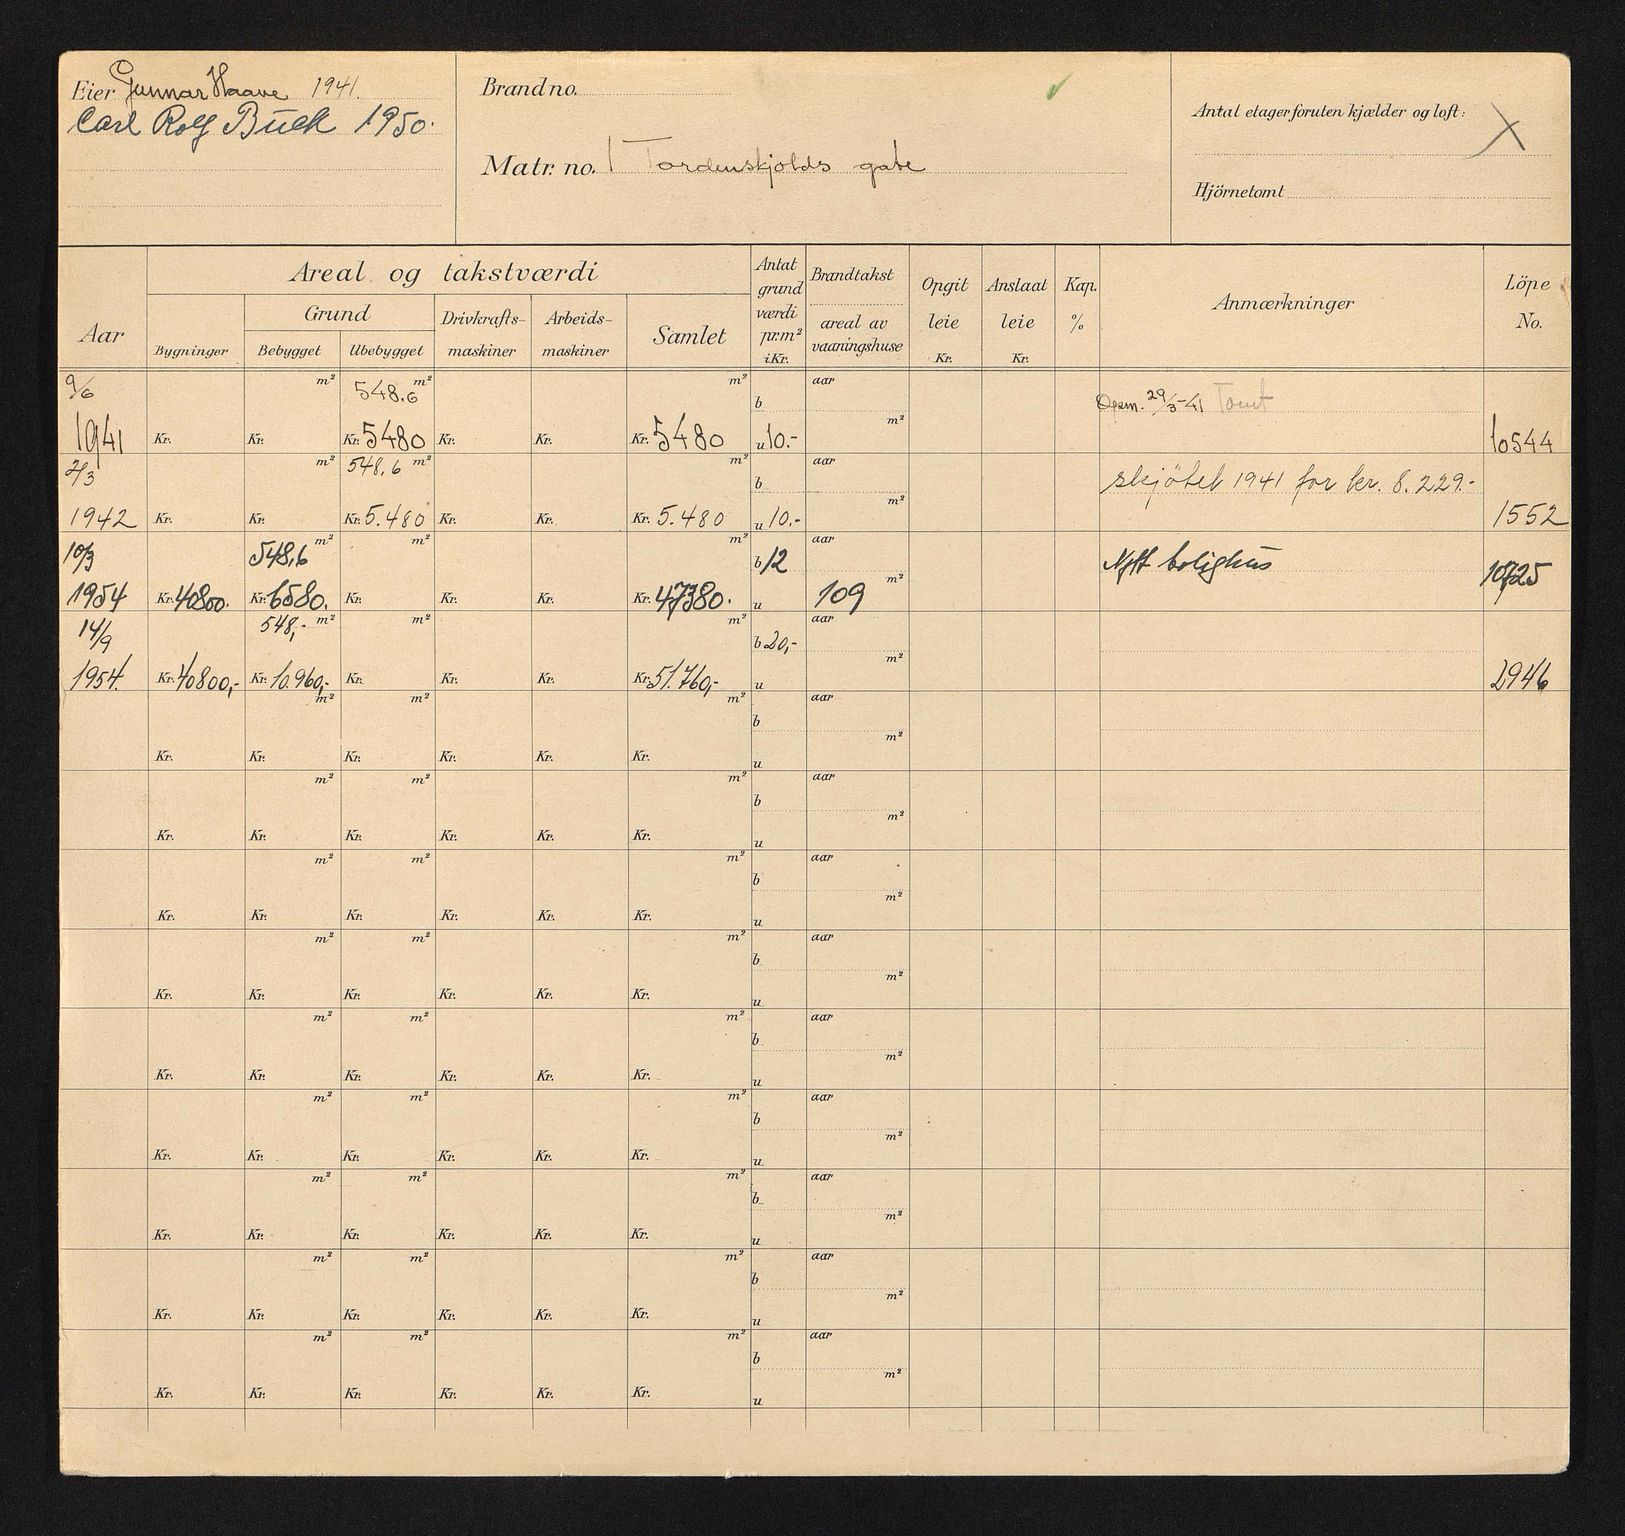 Eier Gunnar Haave 1941.
Carl Rolf Buck 1950.
Brand no.
Matr. no. 1 Tordenskjolds gate
Antal etager foruten kjælder og loft: X
Hjörnetomt
Aar
Areal og takstværdi
Grund
Bygninger
Bebygget
Ubebygget
Drivkrafts-
maskiner
Arbeids-
maskiner
Samlet
Antat
grund
værdi
pr.m²
i Kr.
Brandtakst
areal av
vaaningshuse
Opgit
leie
Kr.
Anslaat
leie
Kr.
Kap.
%
Anmærkninger
Löpe
No.
9/6 m² 548.6 m² m² b aar Opm. 29/3-41 Tomt
1941 Kr. Kr. Kr. 5480 Kr. Kr. Kr. 5480 u 10.- m² 10544
2/3 m² 548.6 m² m² b aar skjøtet 1941 for kr. 8.229.-
1942 Kr. Kr. Kr. 5.480 Kr. Kr. Kr. 5.480 u 10.- m² 1552
10/3 548,6 m² m² m² b 12 aar Nytt bolighus
1954 Kr. 40800. Kr. 6580. Kr. Kr. Kr. Kr. 47380. u 109 m² 10725
14/9 548,- m² m² m² b 20,- aar
1954. Kr. 40800,- Kr. 10.960,- Kr. Kr. Kr. Kr. 51.760,- u m² 2946
m² m² m² b aar
Kr. Kr. Kr. Kr. Kr. Kr. u m²
m² m² m² b aar
Kr. Kr. Kr. Kr. Kr. Kr. u m²
m² m² m² b aar
Kr. Kr. Kr. Kr. Kr. Kr. u m²
m² m² m² b aar
Kr. Kr. Kr. Kr. Kr. Kr. u m²
m² m² m² b aar
Kr. Kr. Kr. Kr. Kr. Kr. u m²
m² m² m² b aar
Kr. Kr. Kr. Kr. Kr. Kr. u m²
m² m² m² b aar
Kr. Kr. Kr. Kr. Kr. Kr. u m²
m² m² m² b aar
Kr. Kr. Kr. Kr. Kr. Kr. u m²
m² m² m² b aar
Kr. Kr. Kr. Kr. Kr. Kr. u m²